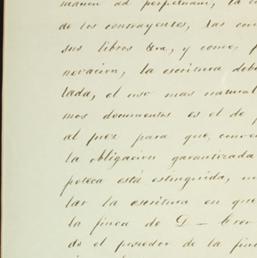 manen ad perpetuam, la
de los contrayentes, las
sus libros &ra, y como,
novacion, la escritura
tada, el uso mas natural
mos documentos es el de
al juez para que,
la obligacion garantizada
poteca está estinguida,
lar la escritura en que
la finca de D —
do el poseedor de la finca